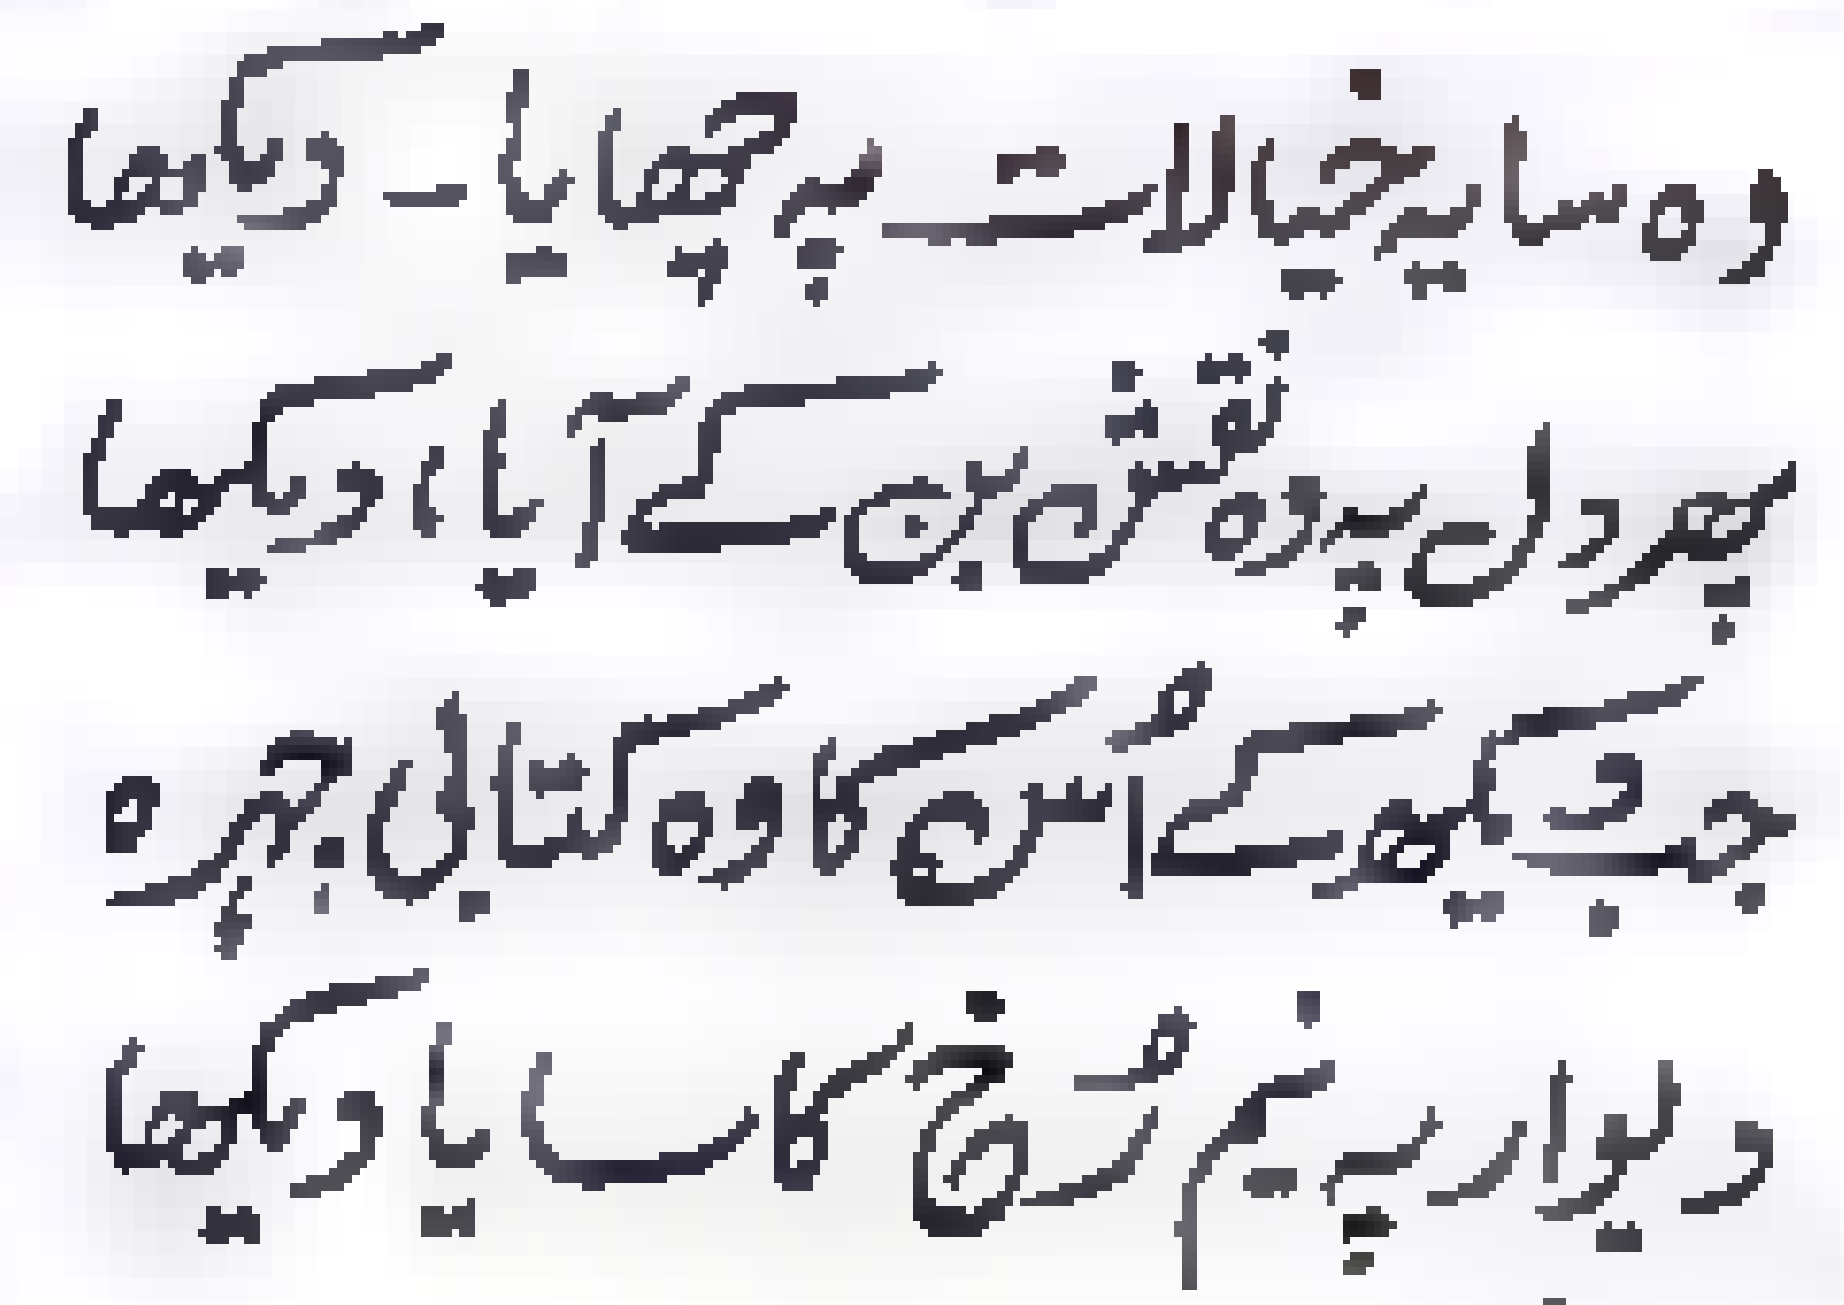 وہ سایہ خیالات پہ چھایا۔ دیکھا
پھر دل پہ وہ نقش بن کے آیا، دیکھا
جب دیکھ کے اُس کا وہ کتابی چہرہ
دیوار پہ نیم رُخ کا سایا دیکھا